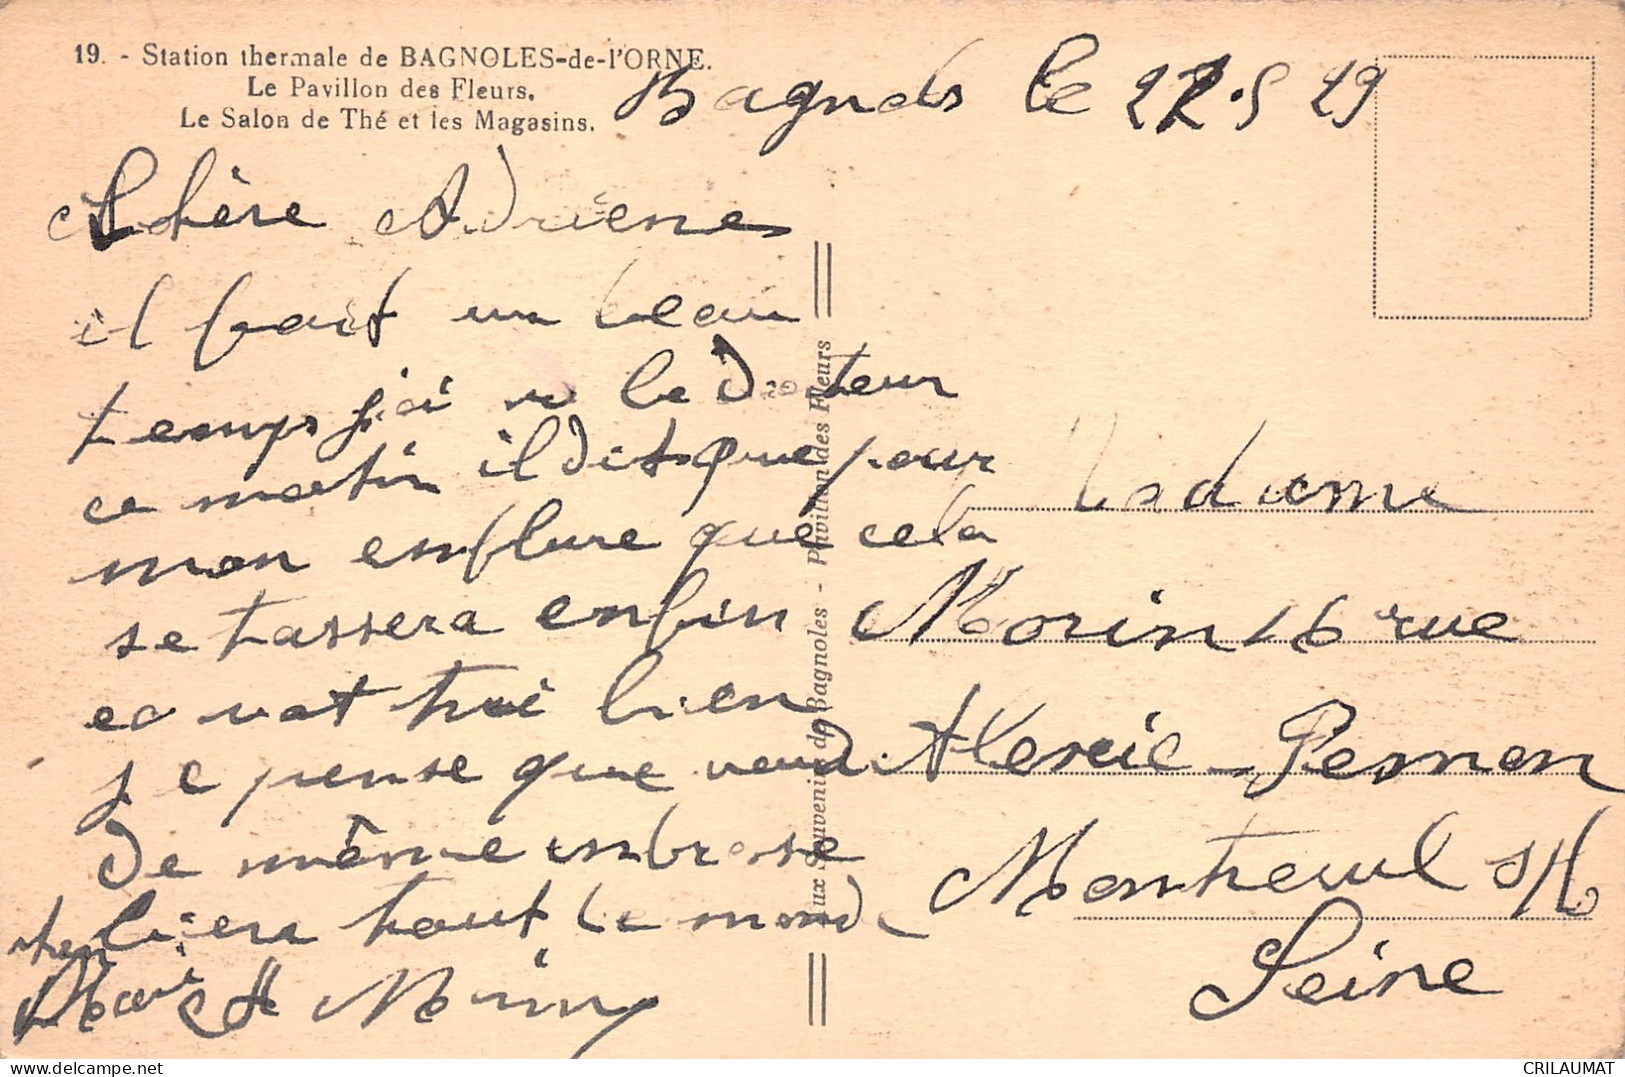 19. - Station thermale de BAGNOLES-de-l'ORNE.
Le Pavillon des Fleurs.
Le Salon de Thé et les Magasins.
Bagnols le 22.5 29
Chère Adriene
il fait un beau
temps j'ai vu le Docteur
ce matin il dit que pour
mon enflure que cela
se tassera enfin
ed vat tré bien
je pense que vous
de même embrasse
bien tout le monde
ton
Mari H Morin
Aux Souvenirs de Bagnoles - Pavillon des Fleurs
Madame
Morin 16 rue
Alexie - Pesnon
Montreuil s/B
Seine
CRILAUMAT